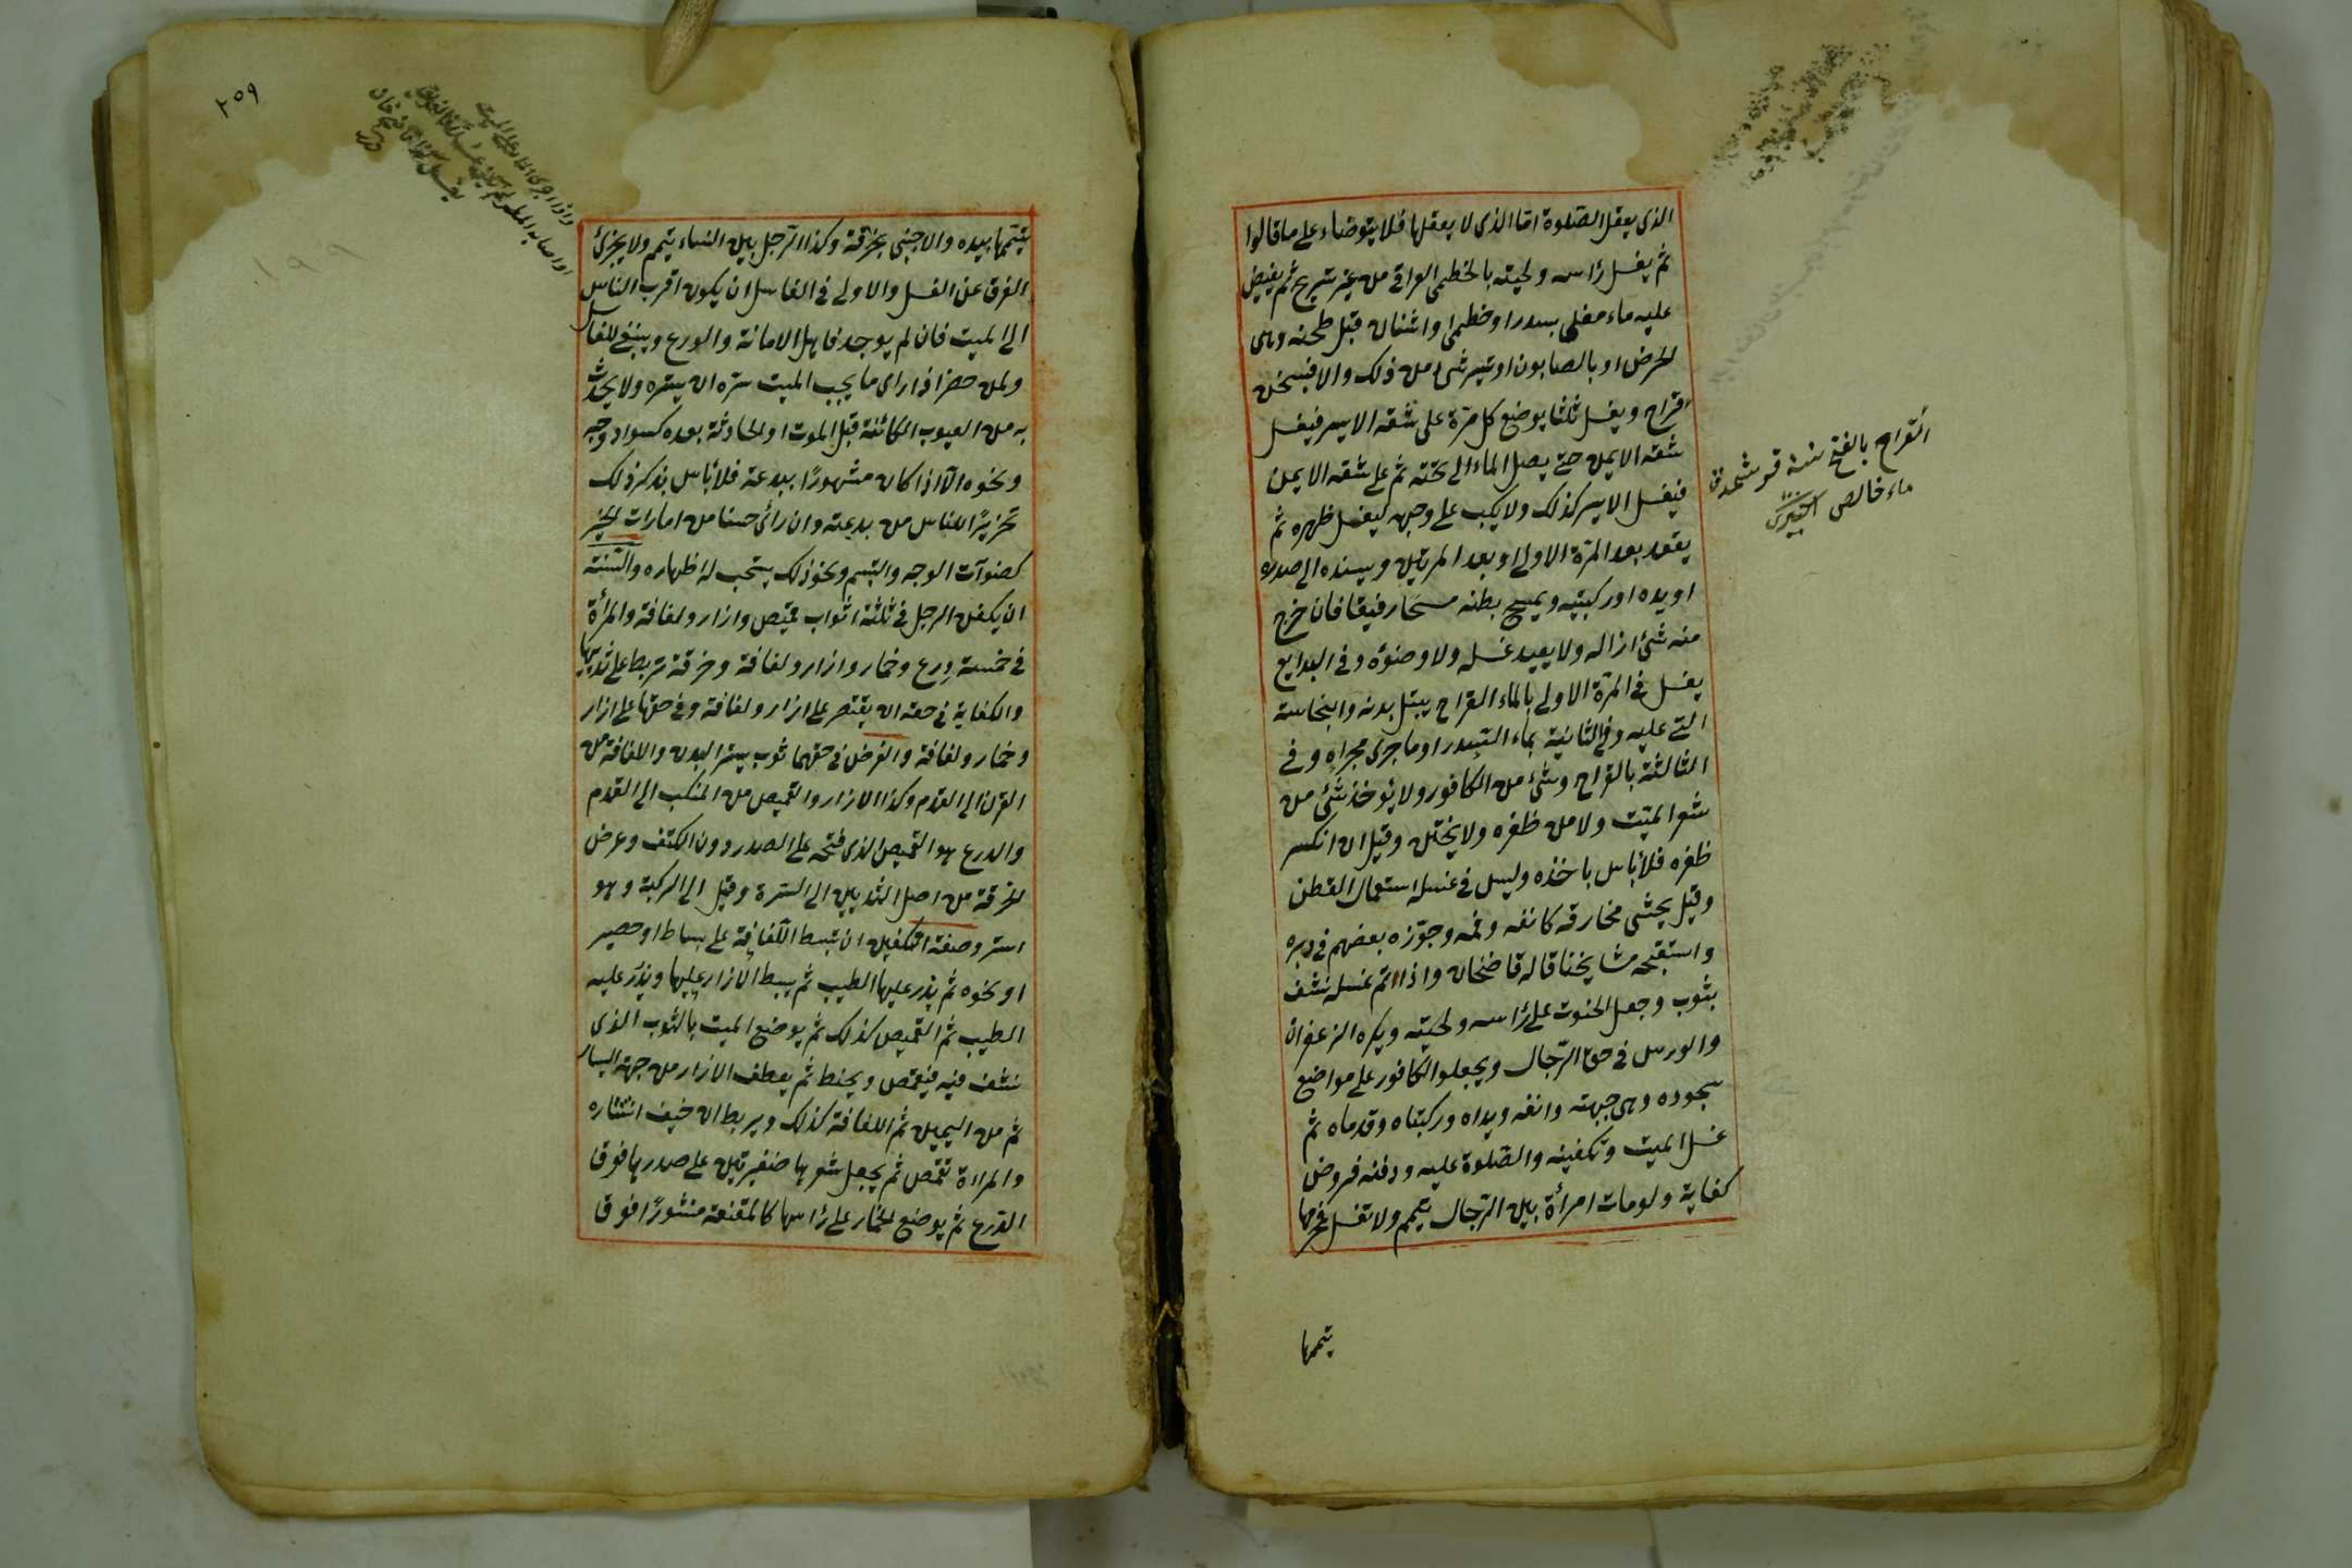 الذى يعقل الصلوة اما الذى لا يعقلها فلا يتوضاء على ما قالوا
ثم يغسل رأسه ولحيته بالخطمى العراقى من غير تسريح ثم يفيض
عليه ماء مغلى بسدر او خطمى او اشنان قبل طحنه وهى
الحرض او بالصابون او تيسر شئ من ذلك والا فيسخن
قراح ويغسل ثلثا يوضع كل مرة على شقه الايسر فيغسل
شقه الايمن حتى يصل الماء الى تحته ثم على شقه الايمن
فيغسل الايسر كذلك ولا يكب على وجهه ليغسل ظهره ثم
يقعد بعد المرة الاولى او بعد المرتين ويسنده الى صدره
او يده او ركبتيه ويمسح بطنه مسحا رفيقا فان خرج
منه شئ ازاله ولا يعيد غسله ولا وضوءه وفى البدايع
يغسل فى المرة الاولى بالماء القراح يبتل بدنه والنجاسة
التى عليه وفى الثانية بماء السدر او ما جرى مجراه وفى
الثالثة بالقراح وشئ من الكافور ولا يؤخذ شئ من
شعر الميت ولا من ظفره ولا يختن وقيل ان انكسر
ظفره فلا بأس باخذه وليس فى غسله استعمال القطن
وقيل يحشى مخارقه كانفه وفمه وجوزه بعضهم فى دبره
واستقبحه مشايخنا قاله قاضخان واذا تم غسله نشف
بثوب وجعل الحنوط على رأسه ولحيته ويكره الزعفران
والورس فى حق الرجال ويجعلوا الكافور على مواضع
سجوده وهى جبهته وانفه ويداه وركبتاه وقدماه ثم
غسل الميت وتكفينه والصلوة عليه ودفنه فروض
كفاية ولو مات امرأة بين الرجال يتيمم ولا تغسل فمحرمها
يتممها
القراح بالفتح
ماء خالص اختيرى
٢٥٩
يتيممها بيده والاجنبى بخرقة وكذا الرجل بين النساء يتيمم ولا يجزئ
الغرق عن الغسل والاولى فى الغاسل ان يكون اقرب الناس
الى الميت فان لم يوجد فاهل الامانة والورع وينبغى للغاسل
ولمن حضر اذا راى ما يجب الميت ستره ان يستره ولا يحدث
به من العيوب الكائنة قبل الموت او الحادثة بعده كسواد وجه
ونحوه الا اذا كان مشهورًا ببدعة فلا بأس بذكر ذلك
تحزيرًا للناس من بدعته وان رائ حسنا من امارات الخير
كضوآت الوجه والتبسم ونحو ذلك يستحب له اظهاره والسنة
ان يكفن الرجل فى ثلثة اثواب قميص وازار ولفافة والمرأة
فى خمسة درع وخمار وازار ولفافة وخرقة تربط على ثدييها
والكفاية فى حقه ان يقتصر على ازار ولفافة وفى حقها على ازار
وخمار ولفافة والفرض فى حقهما ثوب يستر البدن واللفافة من
القرن الى القدم وكذا الازار والقميص من المنكب الى القدم
والدرع هو القميص الذى فتحه على الصدر دون الكتف وعرض
الخرقة من اصل الثديين الى السترة وقيل الى الركبة وهو
استر وصفة التكفين ان تبسط اللفافة على بساط او حصير
او نحوه ثم يذر عليها الطيب ثم يبسط الازار عليها ويذر عليه
الطيب ثم القميص كذلك ثم يوضع الميت بالثوب الذى
نشف فيه فيقمص ويحنط ثم يعطف الازار من جهة اليسار
ثم من اليمين ثم اللفافة كذلك ويربط ان خيف انتشاره
والمراءة تقمص ثم يجعل شعرها ضفيرتين على صدرها فوق
الدرع ثم يوضع الخمار على رأسها كالمقنعة منشورًا فوق